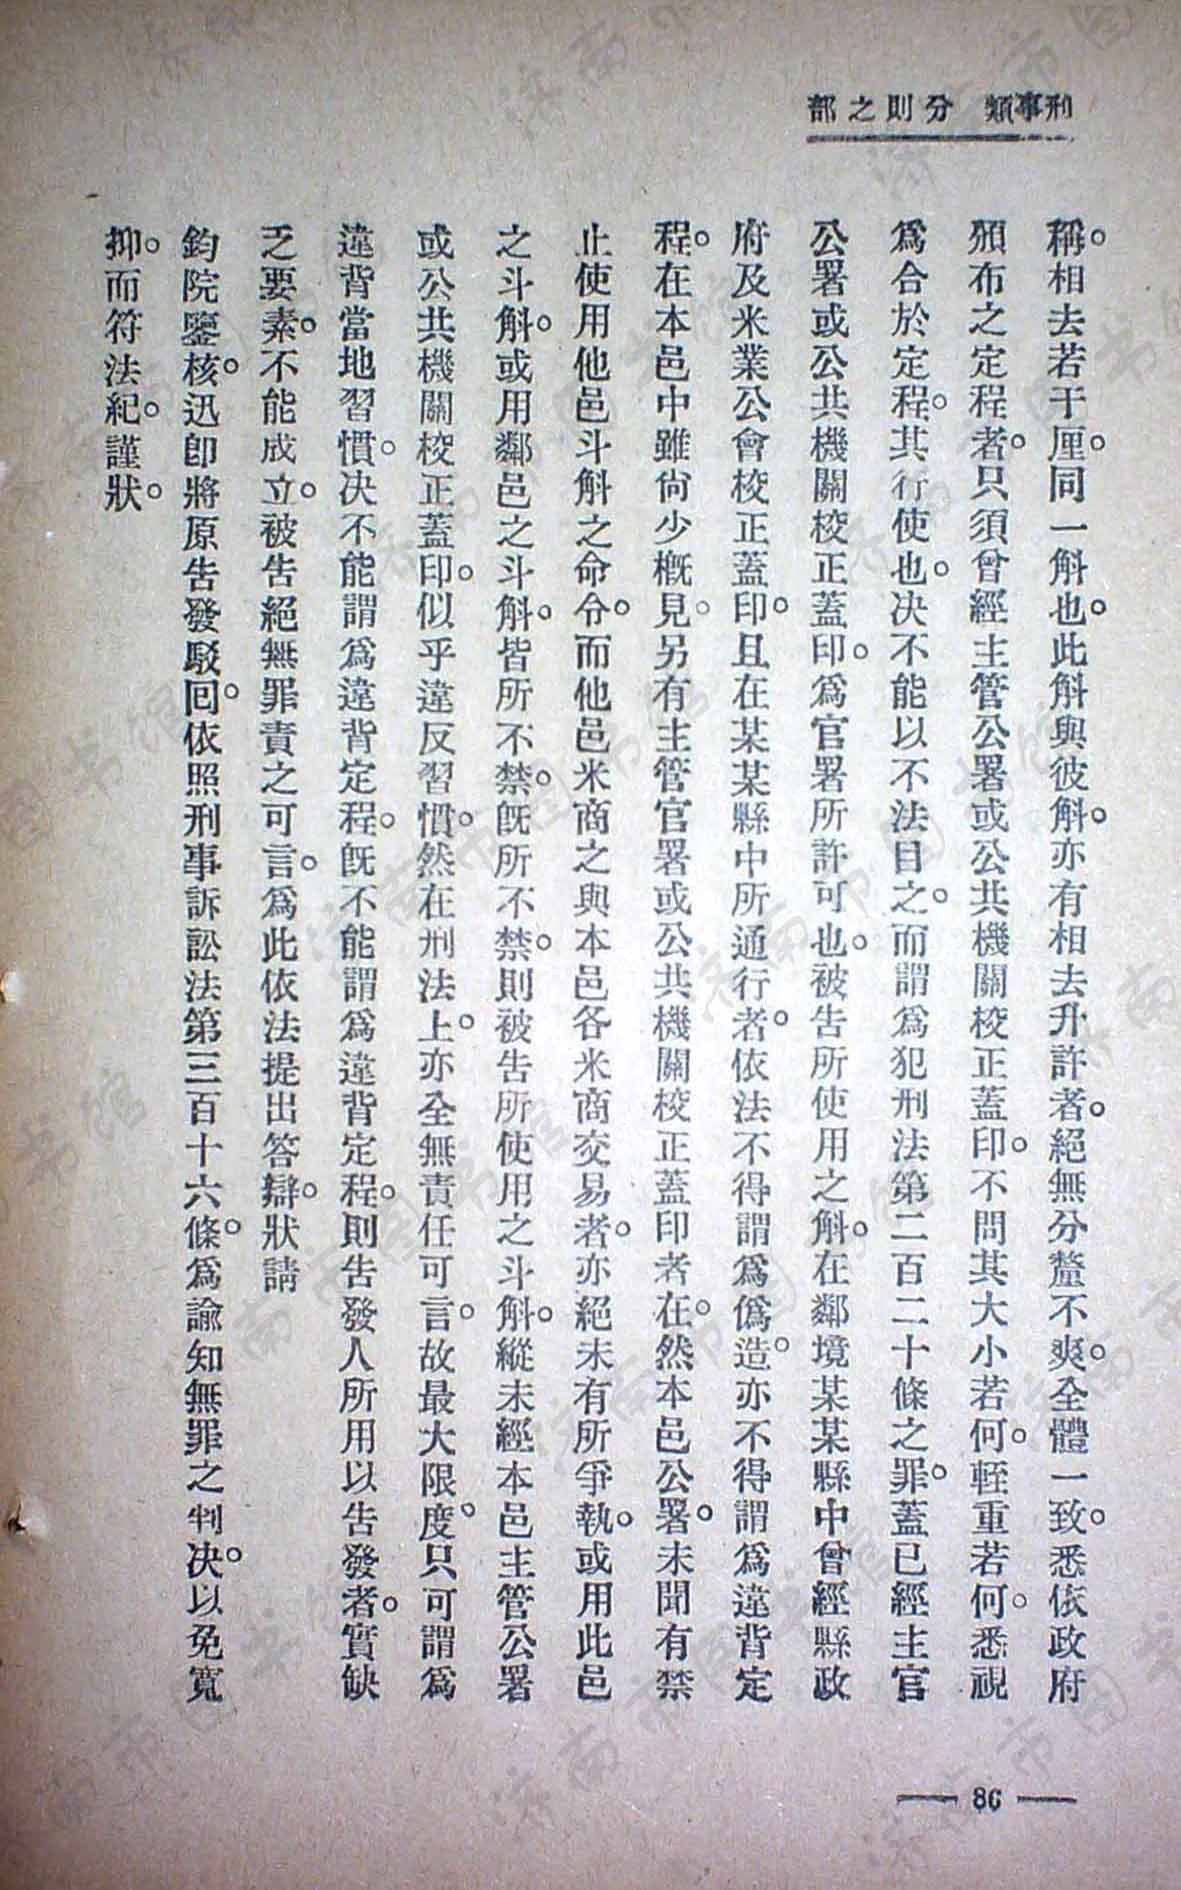 刑事類 分則之部
稱。相去若干厘。同一斛也。此斛與彼斛。亦有相去升許者。絕無分釐不爽。全體一致。悉依政府
頒布之定程者。只須曾經主管公署或公共機關校正蓋印。不問其大小若何。輕重若何。悉視
爲合於定程。其行使也。决不能以不法目之。而謂爲犯刑法第二百二十條之罪。蓋已經主官
公署或公共機關校正蓋印。爲官署所許可也。被告所使用之斛。在鄰境某某縣中曾經縣政
府及米業公會校正蓋印。且在某某縣中所通行者。依法不得謂爲僞造。亦不得謂爲違背定
程。在本邑中雖尙少槪見。另有主管官署或公共機關校正蓋印者在。然本邑公署。未聞有禁
止使用他邑斗斛之命令。而他邑米商之與本邑各米商交易者。亦絕未有所爭執。或用此邑
之斗斛。或用鄰邑之斗斛。皆所不禁。旣所不禁。則被告所使用之斗斛。縱未經本邑主管公署
或公共機關校正蓋印。似乎違反習慣。然在刑法上。亦全無責任可言。故最大限度。只可謂爲
違背當地習慣。决不能謂爲違背定程。旣不能謂爲違背定程。則告發人所用以告發者。實缺
乏要素。不能成立。被告絕無罪責之可言。爲此依法提出答辯狀。請
鈞院鑒核。迅卽將原告發駁回。依照刑事訴訟法第三百十六條。爲諭知無罪之判决。以免寃
抑。而符法紀。謹狀。
— 86 —